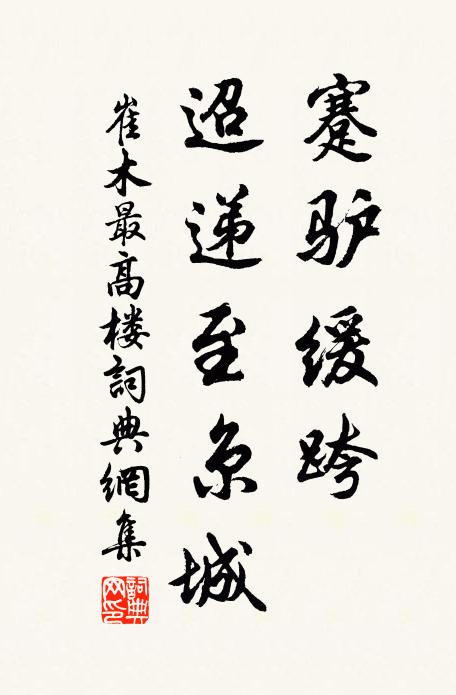 蹇驴缓跨
迢递至京城
崔木最高楼詞典網集
詞典网印